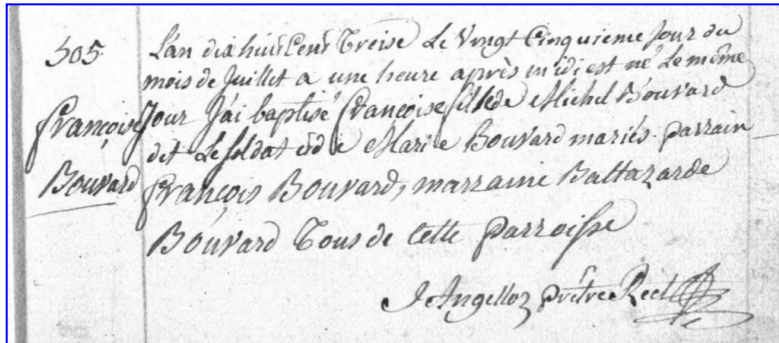 505
Françoise
Bouvard
L'an dix huit Cent Treise Le Vingt Cinquieme Jour du
mois de Juillet a une heure après midi est né Le même
Jour J'ai baptisé Françoise fille de Michel Bouvard
dit Le Soldat et de Marie Bouvard mariés. parrain
François Bouvard, marraine Baltazarde
Bouvard Tous de Cette parroisse
J Angelloz prêtre Rect